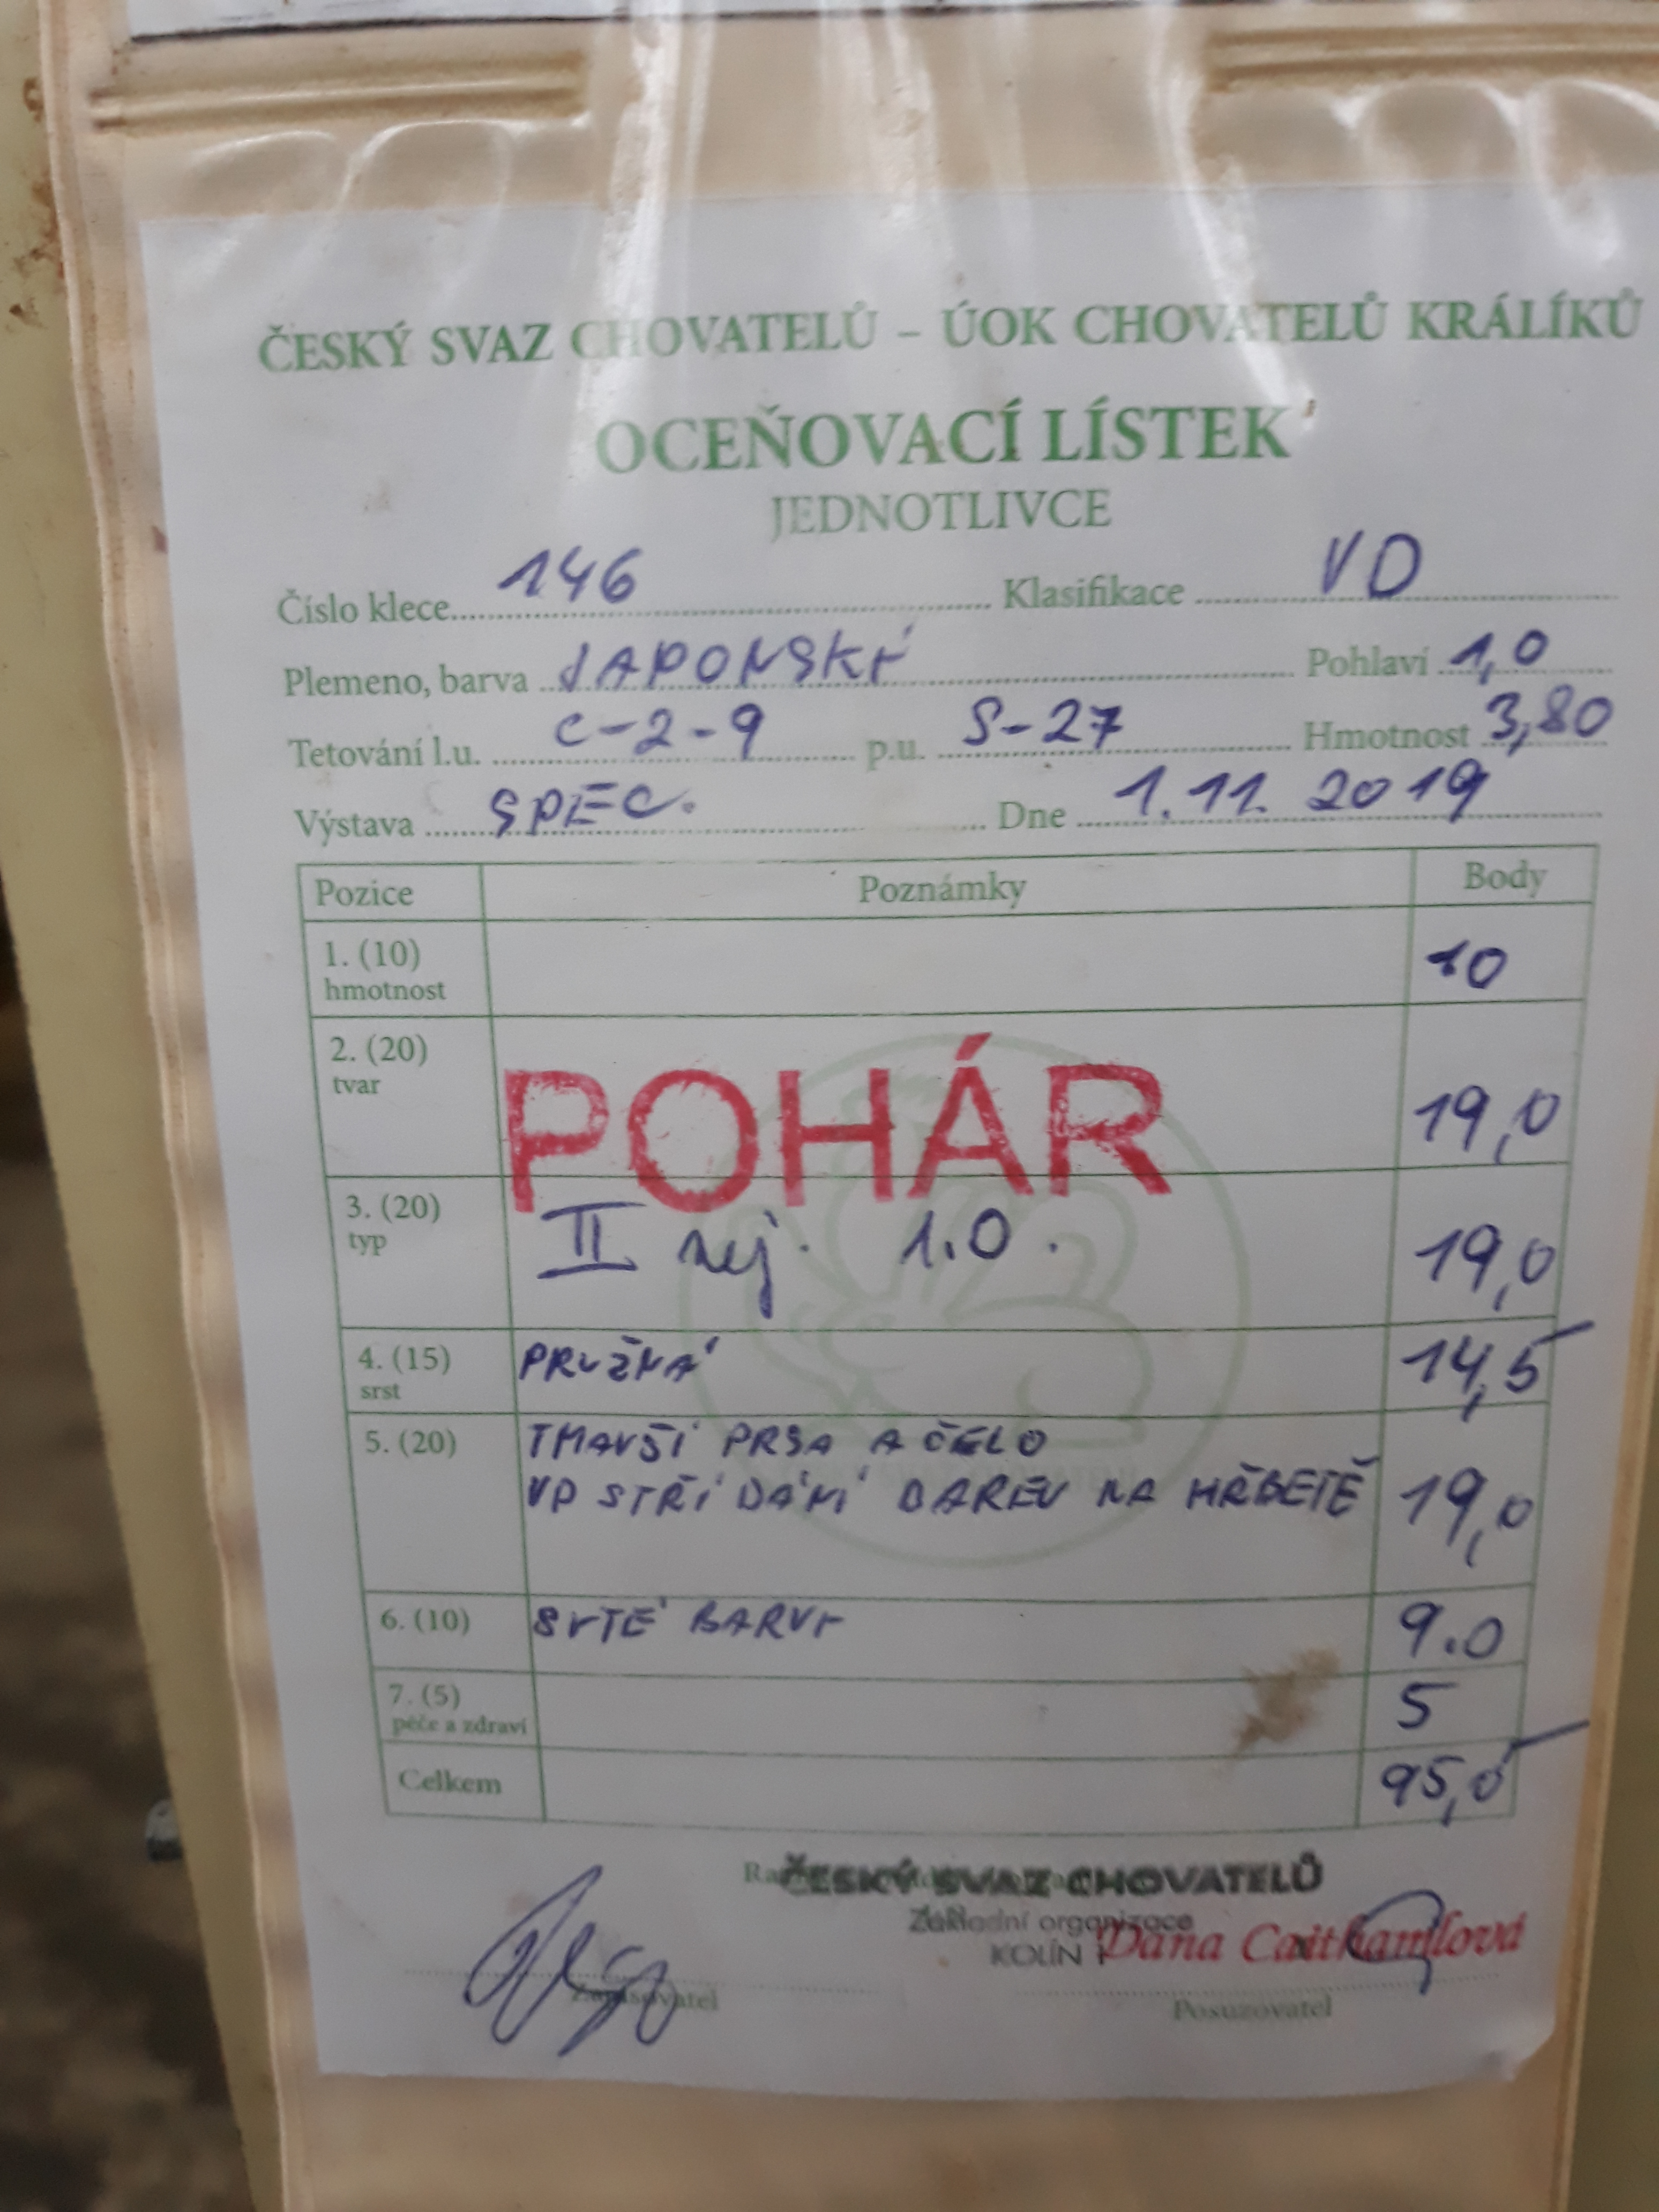 ČESKÝ SVAZ CHOVATELŮ – ÚOK CHOVATELŮ KRÁLÍKŮ
OCEŇOVACÍ LÍSTEK
JEDNOTLIVCE
Číslo klece 146 Klasifikace VD
Plemeno, barva JAPONSKÝ Pohlaví 1,0
Tetování l.u. C-2-9 p.u. S-27 Hmotnost 3,80
Výstava SPEC. Dne 1.11. 2019
Pozice Poznámky Body
1. (10) hmotnost 10
2. (20) tvar 19,0
POHÁR
3. (20) typ II nej. 1.0. 19,0
4. (15) srst PRUŽNÁ 14,5
5. (20) TMAVŠÍ PRSA A ČELO
VD STŘÍDÁNÍ BAREV NA HŘBETĚ 19,0
6. (10) SYTÉ BARVY 9.0
7. (5) péče a zdraví 5
Celkem 95,0
ČESKÝ SVAZ CHOVATELŮ
Základní organizace
KOLÍN 1 Dana Caithamlová
Zapisovatel Posuzovatel